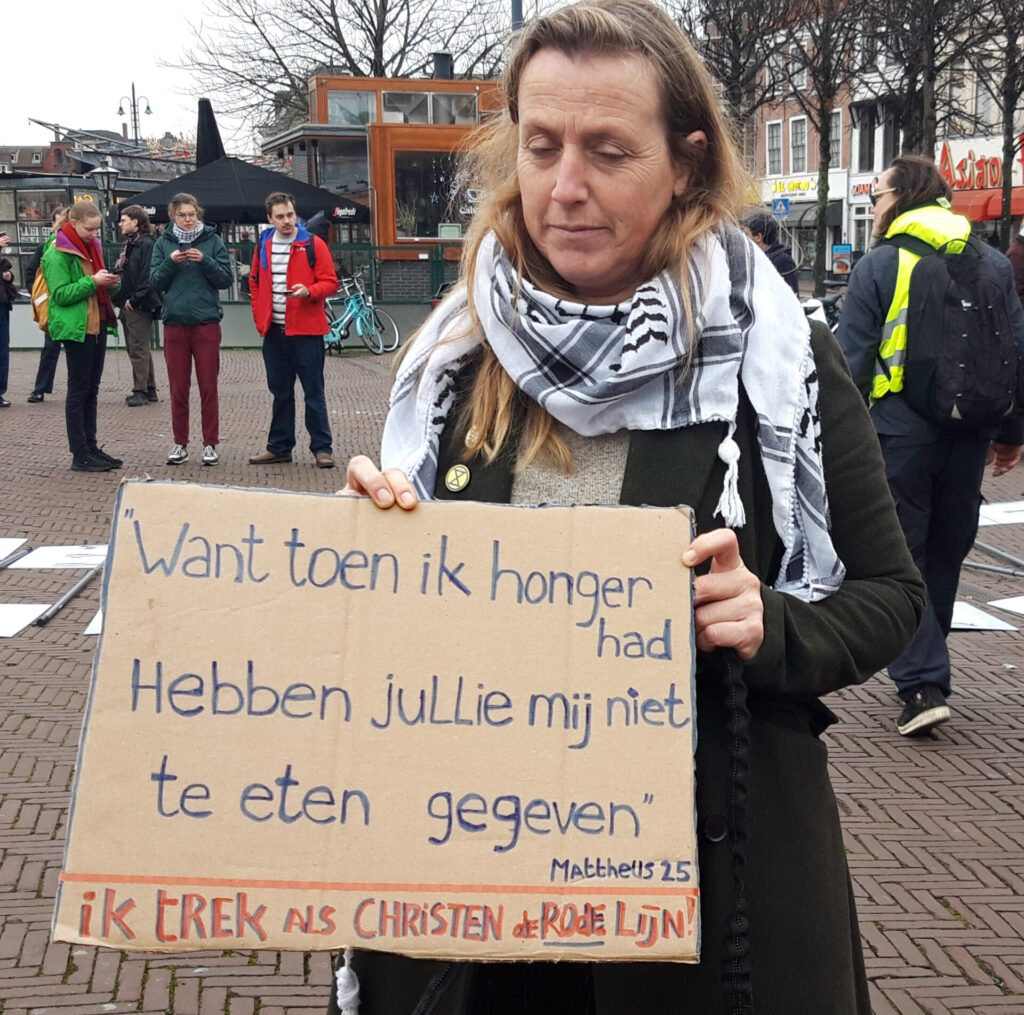 "Want toen ik honger
had
Hebben julLie mij niet
te eten gegeven"
Mattheüs 25
iK tREK ALS CHRiSTEN de RODE LIJN!